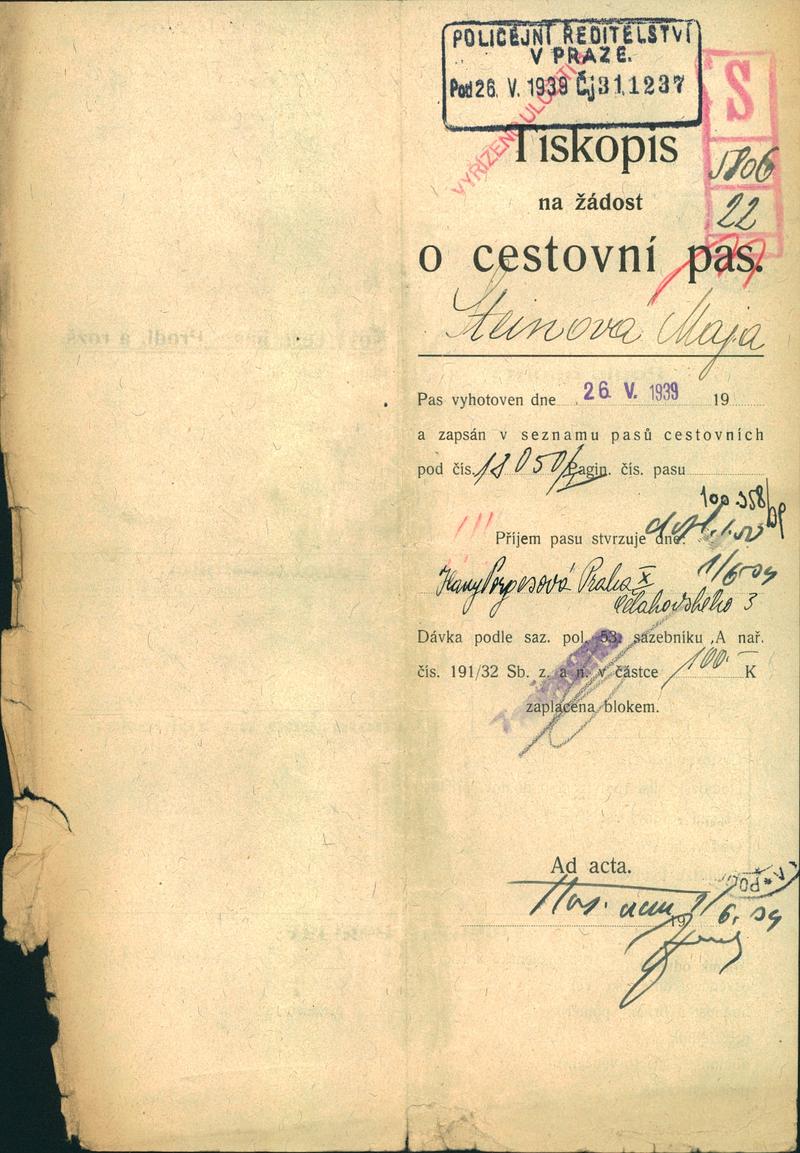 POLICEJNÍ ŘEDITELSTVÍ
V PRAZE.
Pod 26. V. 1939 Čj 311237
VYŘÍZENO ULOŽIT
S
5806
22
Tiskopis
na žádost
o cestovní pas.
Steinová Maja
Pas vyhotoven dne 26. V. 1939 19
a zapsán v seznamu pasů cestovních
pod čís. 18050/ Pagin. čís. pasu
100.358/
Příjem pasu stvrzuje dne:
1/6 39
Porgesová Praha X
3
Dávka podle saz. pol. 53. sazebníku A nař.
čís. 191/32 Sb. z. a n. v částce 100.- K
zaplacena blokem.
Ad acta.
19 1/6. 39